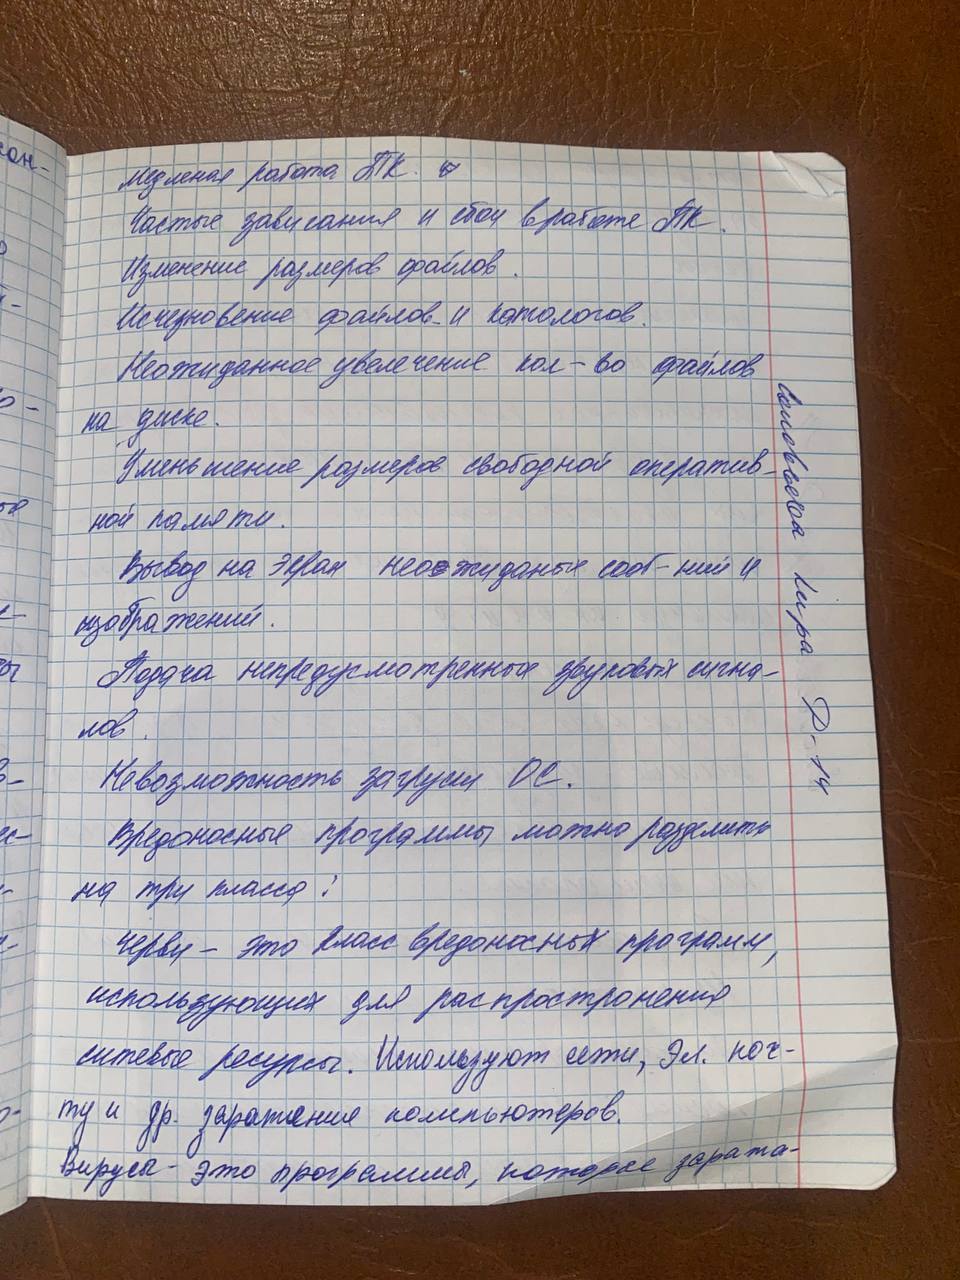 медленая работа ПК.
Частые зависания и сбои в работе ПК.
Изменение размеров файлов.
Исчезновение файлов и катологов.
Неожиданное увелечение кол-во файлов
на диске.
Уменьшение размеров свободной оператив-
ной памяти.
Вывод на экран неожиданых сооб-ний и
изображений.
Подача непредусмотренных звуковых сигна-
лов.
Невозможность загрузки ОС.
Вредоносные программы можно разделить
на три класса:
Черви - это класс вредоносных программ,
использующих для распространения
ситевые ресурсы. Используют сети, Эл. поч-
ту и др. заражения компьютеров.
Вирусы - это программы, которые заража-
Кира Р-14